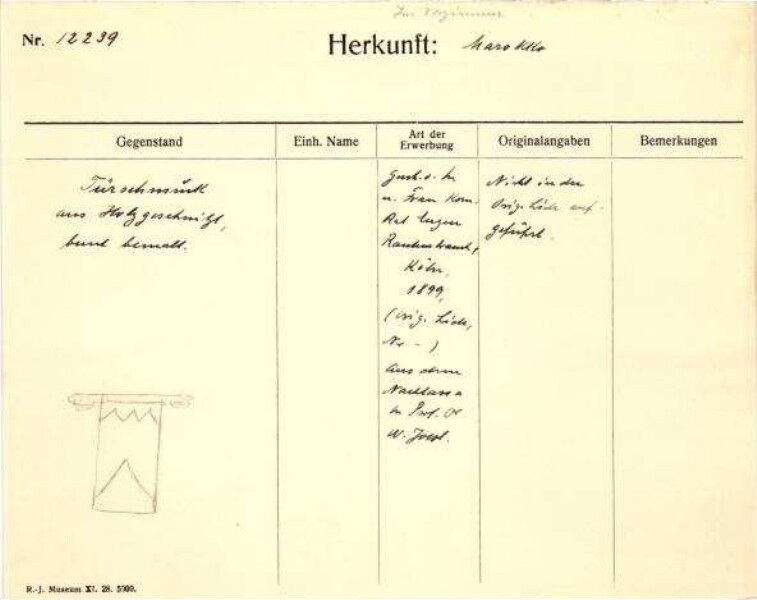 Nr. 12239
Herkunft: Marokko
Gegenstand
Einh. Name
Art der
Erwerbung
Originalangaben
Bemerkungen
Türschmuck
aus Holz geschnitzt,
bunt bemalt.
u. Frau Kom.
Rat Eugen
Rautenstrauch,
Köln,
1899,
(Orig. Liste,
Nr. - )
Aus dem
Nachlass
Prof. Dr
W. Joest.
Nicht in der
Orig. Liste auf-
geführt.
R.-J. Museum XI. 28. 5000.